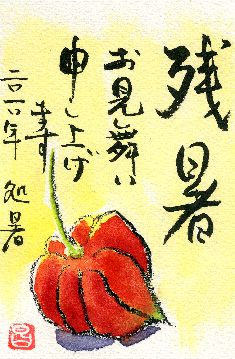 残暑
お見舞い
申し上げ
ます
二〇一〇年 処暑